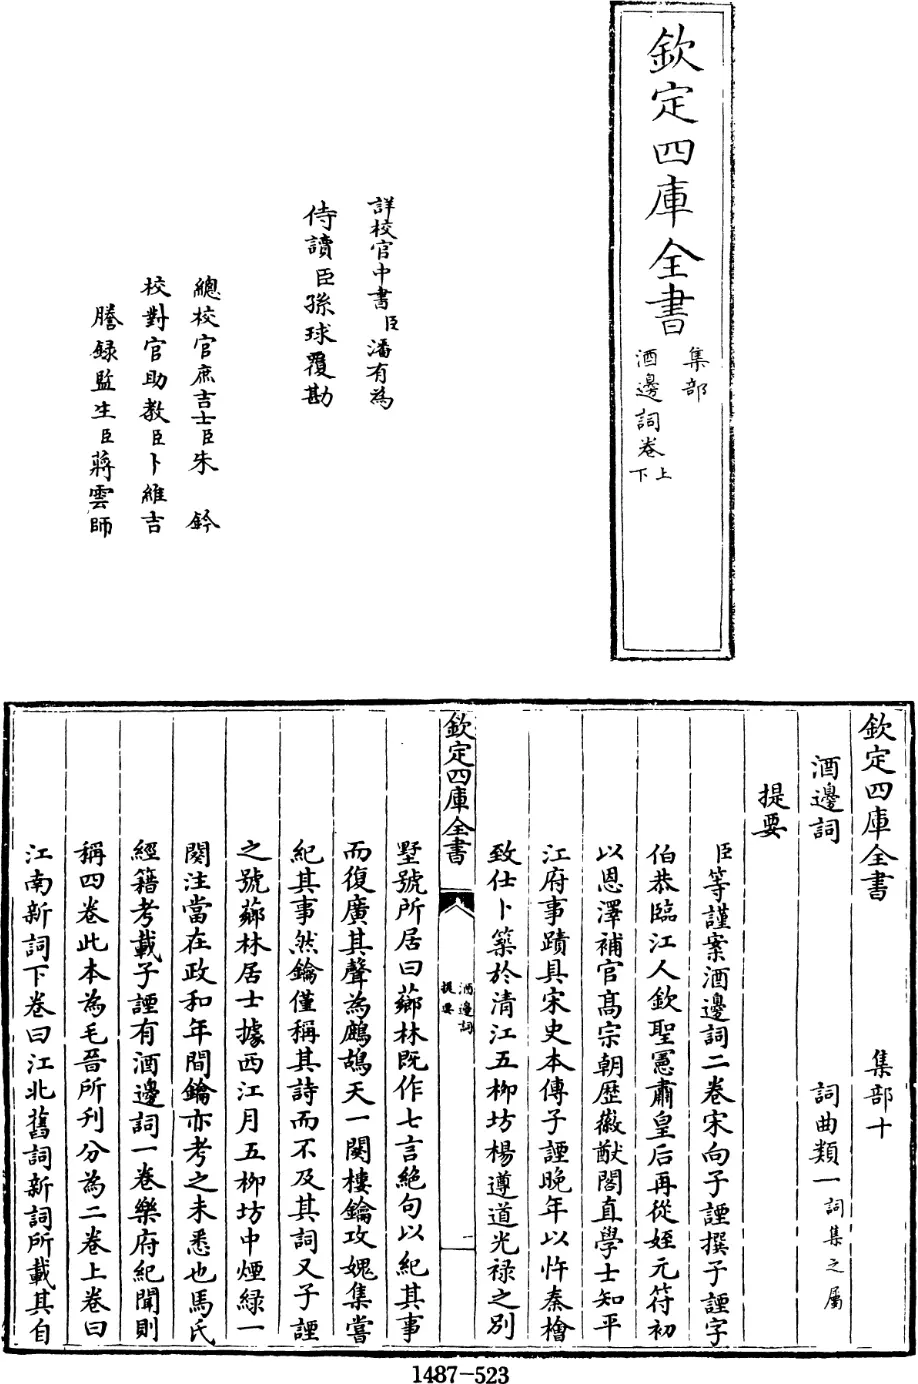 欽定四庫全書
集部
酒邊詞卷上下
詳校官中書臣潘有為
侍讀臣孫球覆勘
總校官庶吉士臣朱鈐
校對官助教臣卜維吉
謄録監生臣蔣雲師
欽定四庫全書 集部十
酒邊詞 詞曲類一詞集之屬
提要
臣等謹案酒邊詞二卷宋向子諲撰子諲字
伯恭臨江人欽聖憲肅皇后再從姪元符初
以恩澤補官髙宗朝歷徽猷閣直學士知平
江府事蹟具宋史本傳子諲晩年以忤秦檜
致仕卜築於清江五栁坊楊遵道光禄之别
欽定四庫全書
酒邊詞
提要
一
墅號所居曰薌林既作七言絶句以紀其事
而復廣其聲為鷓鴣天一闋樓鑰攻媿集嘗
紀其事然鑰僅稱其詩而不及其詞又子諲
之號薌林居士據西江月五栁坊中煙緑一
闋注當在政和年間鑰亦考之未悉也馬氏
經籍考載子諲有酒邊詞一卷樂府紀聞則
稱四卷此本為毛晉所刊分為二卷上卷曰
江南新詞下卷曰江北舊詞新詞所載其自
1487-523